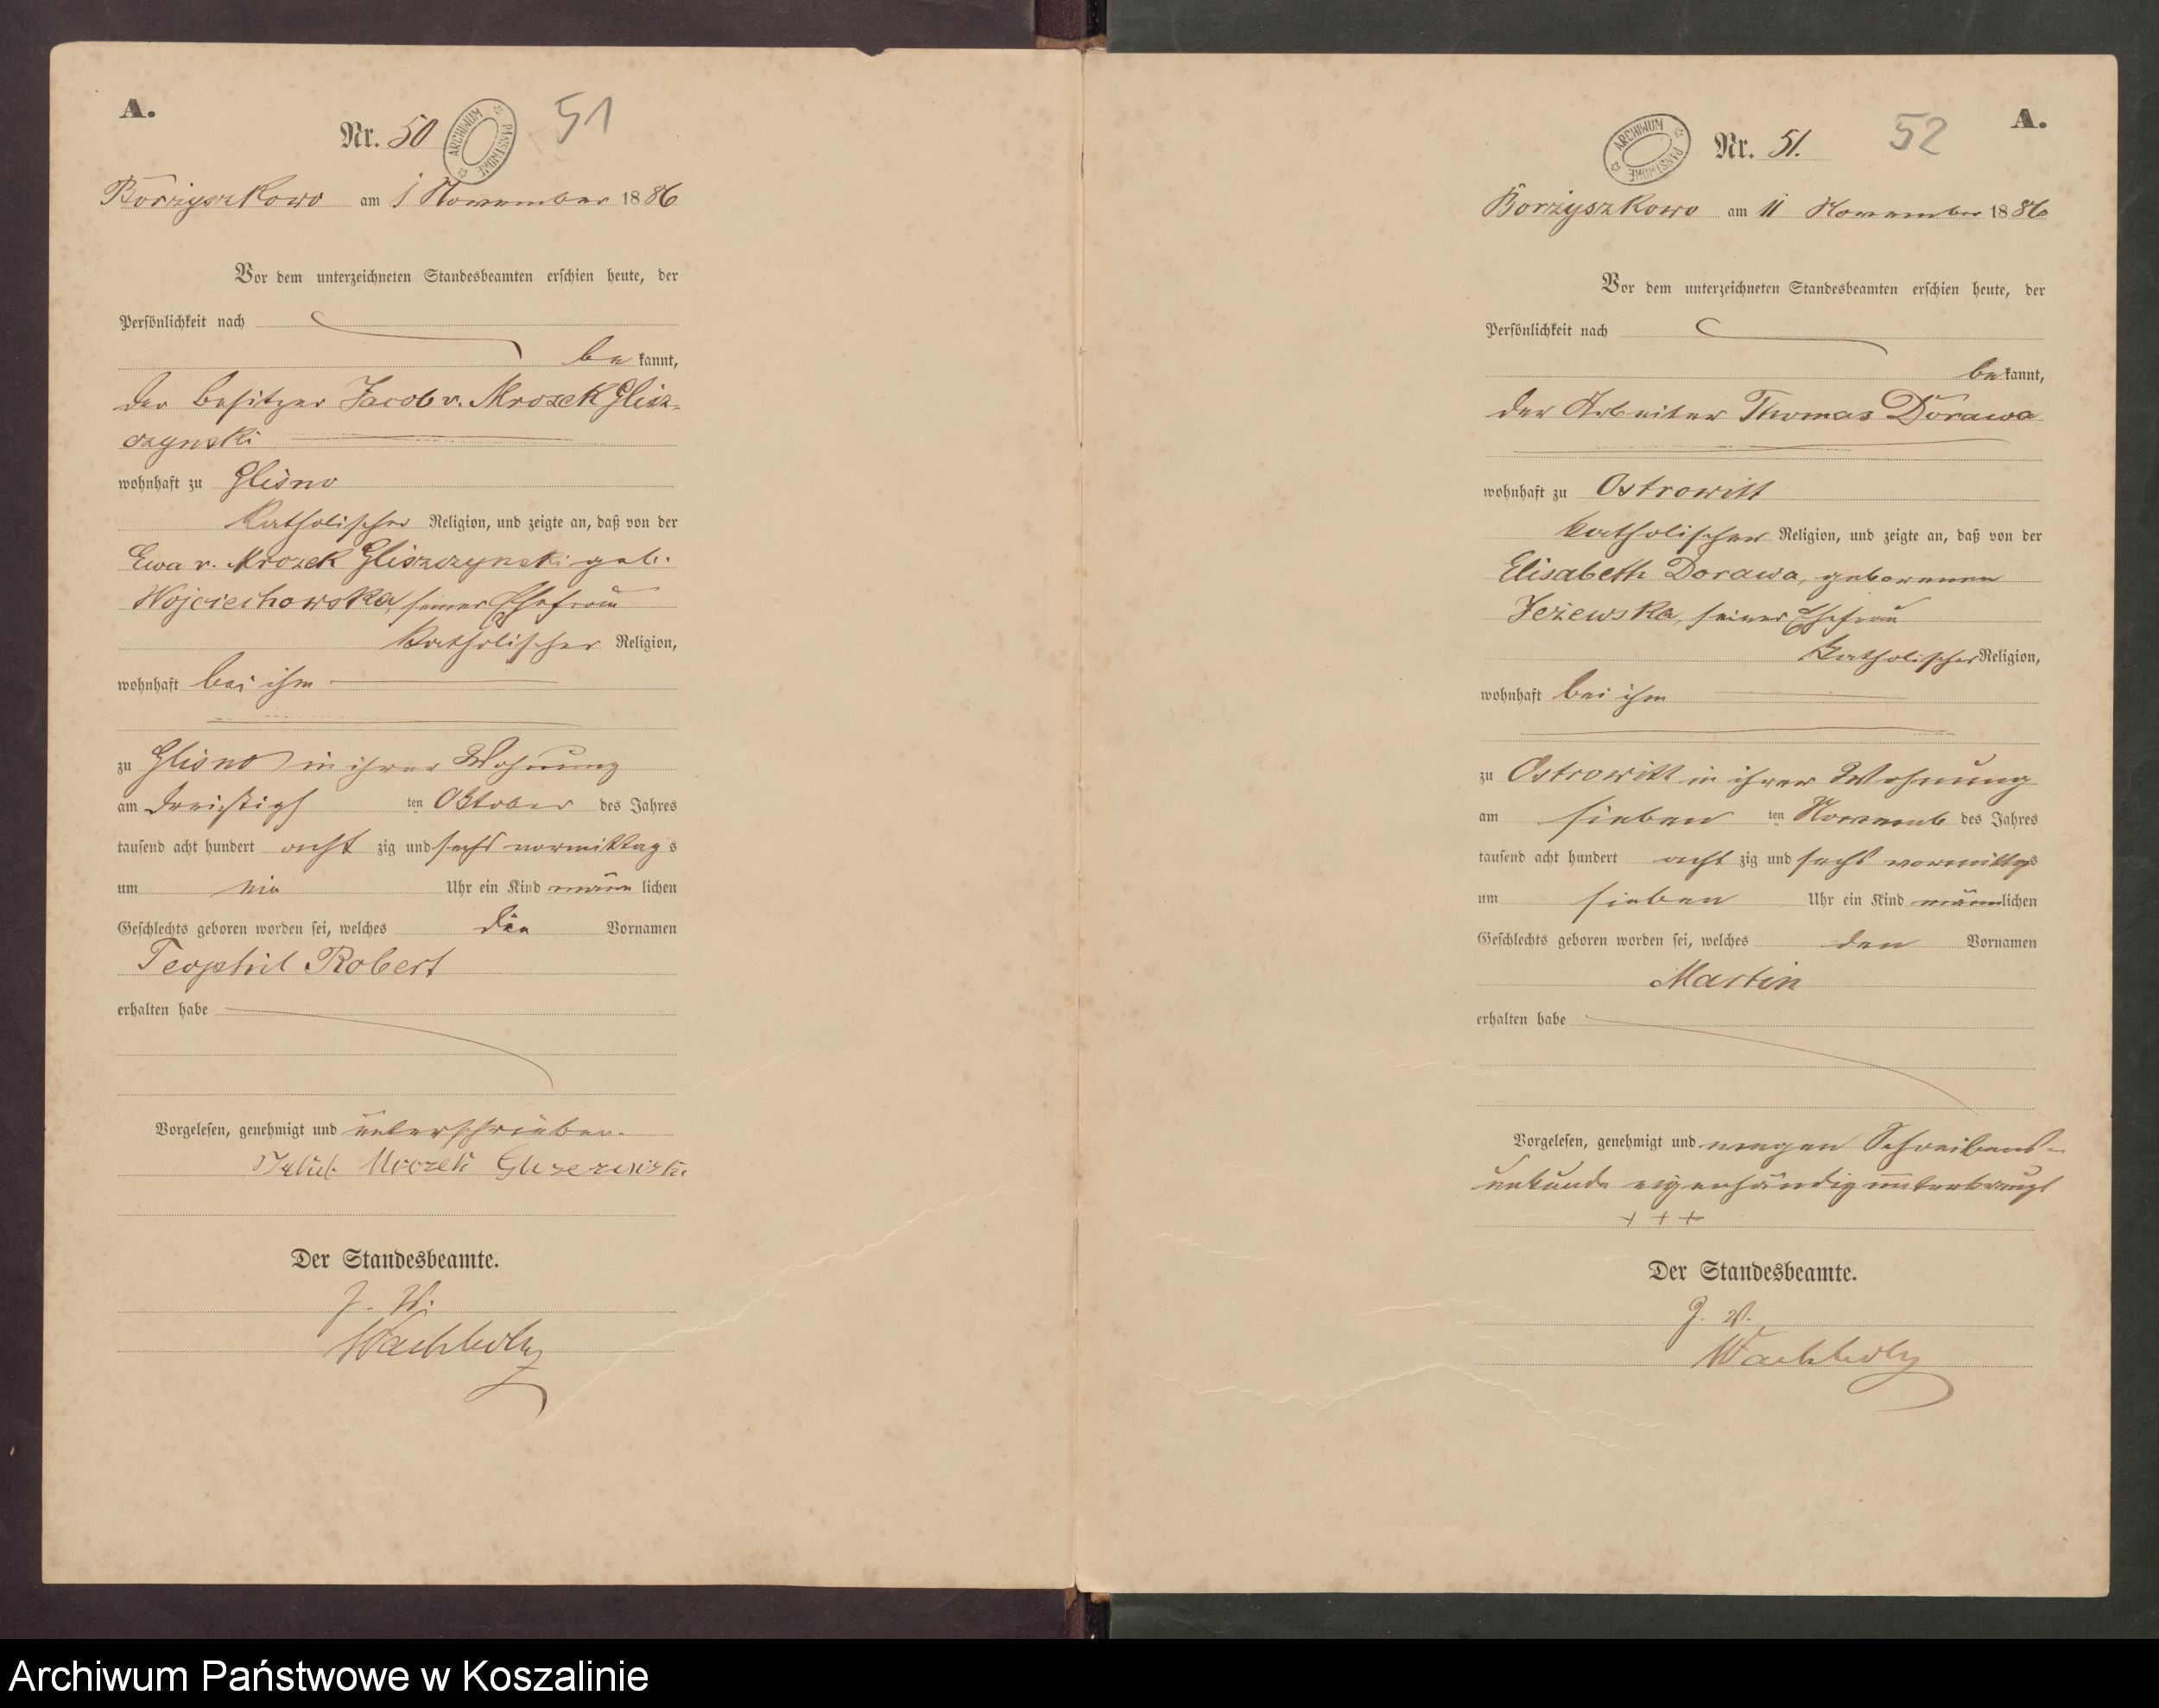 A.
Nr. 50
ARCHIWUM PAŃSTWOWE
51
Borzyszkowo am 1 November 1886
Vor dem unterzeichneten Standesbeamten erschien heute, der
Persönlichkeit nach
be kannt,
der Besitzer Jacob v. Mrozek Glisz-
czynski
wohnhaft zu Glisno
katholischer Religion, und zeigte an, daß von der
Ewa v. Mrozek Gliszczynski geb.
Wojciechowska, seiner Ehefrau
katholischer Religion,
wohnhaft bei ihm
zu Glisno in ihrer Wohnung
am dreißigs ten Oktober des Jahres
tausend acht hundert acht zig und sechs vormittags
um Uhr ein Kind männ lichen
Geschlechts geboren worden sei, welches die Vornamen
Teophil Robert
erhalten habe
Vorgelesen, genehmigt und unterschrieben.
Mrozek
Der Standesbeamte.
J. V.
Wachholz
A.
ARCHIWUM PAŃSTWOWE
Nr. 51.
52
Borzyszkowo am 11 November 1886
Vor dem unterzeichneten Standesbeamten erschien heute, der
Persönlichkeit nach
be kannt,
der Arbeiter Thomas Dorawa
wohnhaft zu Ostrowitt
katholischer Religion, und zeigte an, daß von der
Elisabeth Dorawa, geborenen
Jeżewska, seiner Ehefrau
katholischer Religion,
wohnhaft bei ihm
zu Ostrowitt in ihrer Wohnung
am sieben ten Novemb des Jahres
tausend acht hundert acht zig und sechs vormittags
um sieben Uhr ein Kind männlichen
Geschlechts geboren worden sei, welches den Vornamen
Martin
erhalten habe
Vorgelesen, genehmigt und wegen Schreibens-
unkunde eigenhändig unterkreuzt
+ + +
Der Standesbeamte.
J. V.
Wachholz
Archiwum Państwowe w Koszalinie